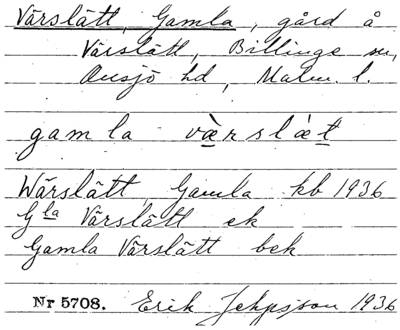 Vårslätt, Gamla, gård å
Vårslätt, Billinge sn,
Onsjö hd, Malm. l.
gam la væ̀rslǽt
Wårslätt, Gamla kb 1936
Gla Vårslätt ek
Gamla Vårslätt bek
Nr 5708. Erik Jeppsson 1936